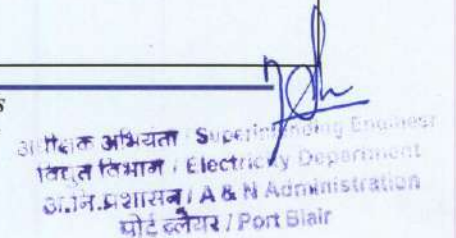 s
अधीक्षक अभियंता / Superintending Engineer
विद्युत विभाग / Electricity Department
अ.नि.प्रशासन / A & N Administration
पोर्ट ब्लेयर / Port Blair